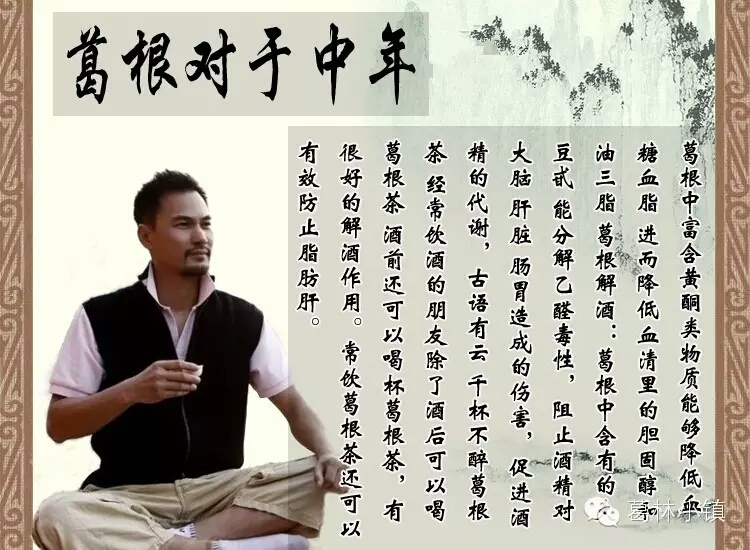 葛根对于中年
葛根中富含黄酮类物质能够降低血
糖血脂 进而降低血清里的胆固醇和
油三脂 葛根解酒：葛根中含有的
豆甙 能分解乙醛毒性，阻止酒精对
大脑 肝脏 肠胃造成的伤害，促进酒
精的代谢，古语有云 千杯不醉葛根
茶 经常饮酒的朋友除了酒后可以喝
葛根茶 酒前还可以喝杯葛根茶，有
很好的解酒作用。常饮葛根茶还可以
有效防止脂肪肝。
葛林小镇